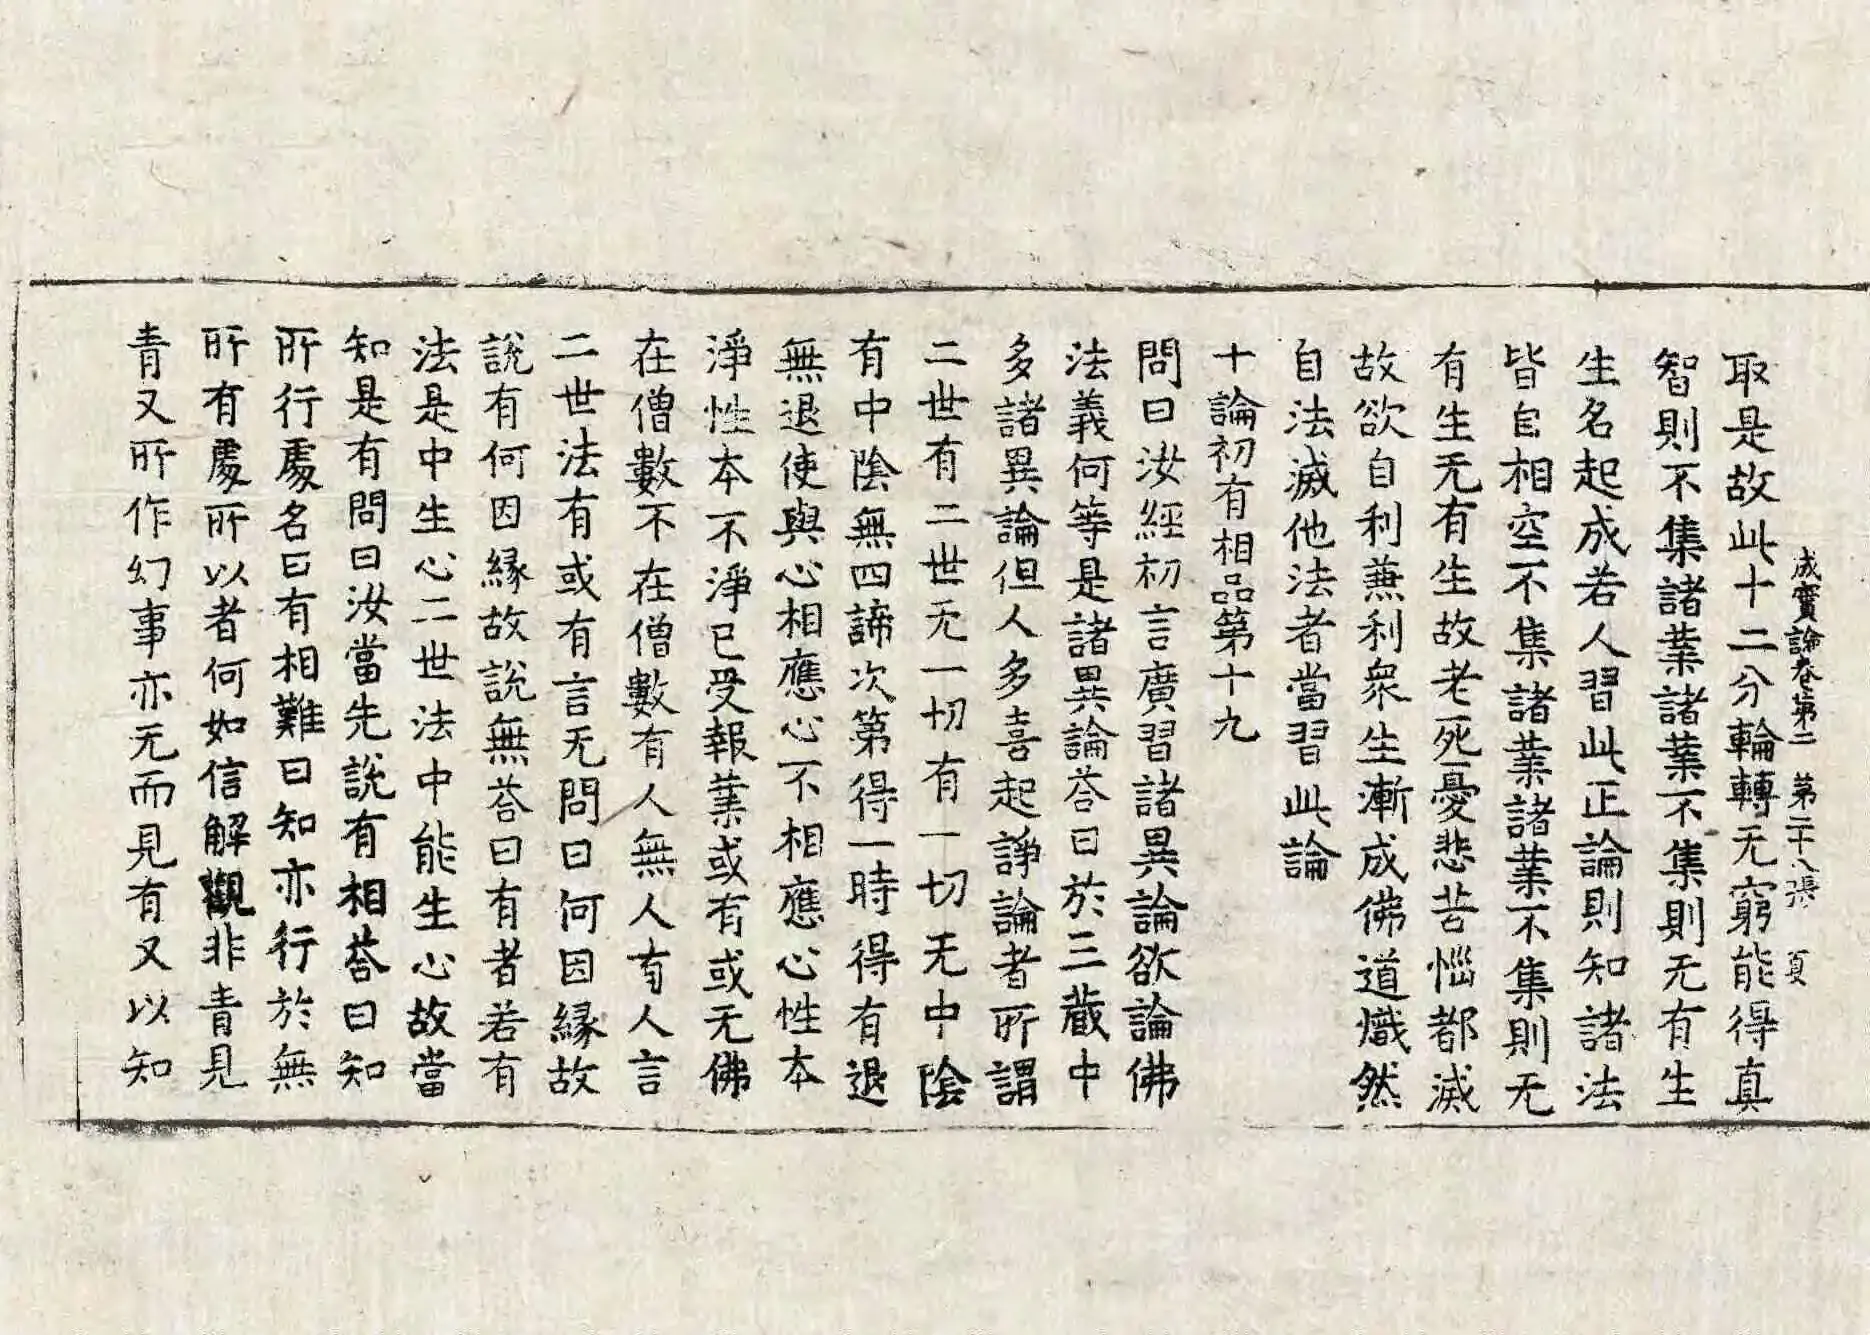 成實論卷第二 第二十八張 頁
取是故此十二分輪轉无窮能得真
智則不集諸業諸業不集則无有生
生名起成若人習此正論則知諸法
皆自相空不集諸業諸業不集則无
有生无有生故老死憂悲苦惱都滅
故欲自利兼利衆生漸成佛道熾然
自法滅他法者當習此論
十論初有相品第十九
問曰汝經初言廣習諸異論欲論佛
法義何等是諸異論荅曰於三蔵中
多諸異論但人多喜起諍論者所謂
二世有二世无一切有一切无中陰
有中陰無四諦次第得一時得有退
無退使與心相應心不相應心性本
淨性本不淨已受報業或有或无佛
在僧數不在僧數有人無人有人言
二世法有或有言无問曰何因緣故
說有何因緣故說無荅曰有者若有
法是中生心二世法中能生心故當
知是有問曰汝當先說有相荅曰知
所行處名曰有相難曰知亦行於無
所有處所以者何如信解觀非青見
青又所作幻事亦无而見有又以知